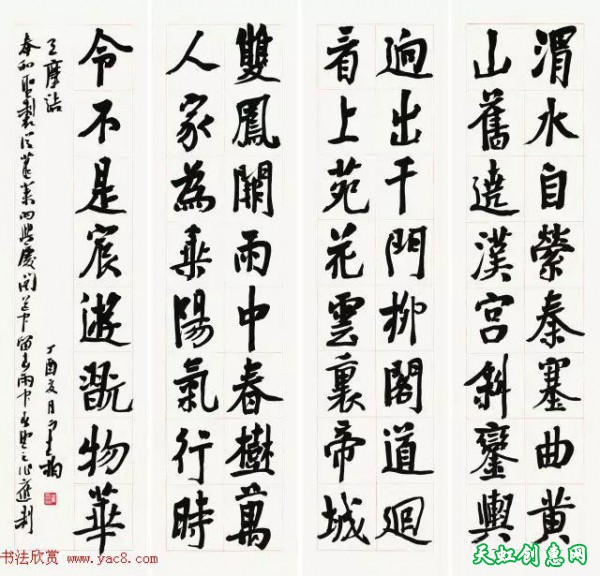 渭水自縈秦塞曲黃
山舊遶漢宮斜鑾輿
迥出千門柳閣道迴
看上苑花雲裏帝城
雙鳳闕雨中春樹萬
人家為乘陽氣行時
令不是宸遊翫物華
王摩詰
奉和聖製從蓬萊向興慶閣道中留春雨中春望之作應制
丁酉夏月
书法欣赏 www.yac8.com
天虹创意网